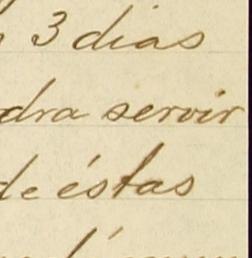 3 dias
dra servir
de éstas